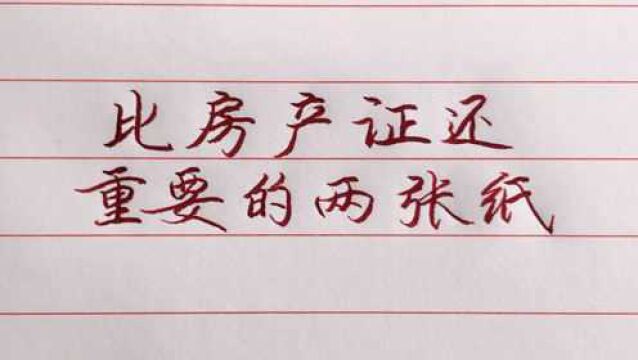 比房产证还
重要的两张纸